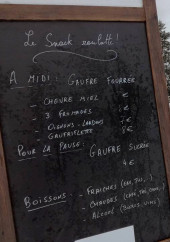 Le Snack roulotte !
A MIDI : GAUFRE FOURRÉE
- CHÈVRE MIEL €
- 3 FROMAGES €
- OIGNONS - LARDONS €
- GAUFRIFLETTE €
POUR LA PAUSE : GAUFRE SUCRÉE
4 €
BOISSONS : - FRAICHES
- CHAUDES
- ALCOOL